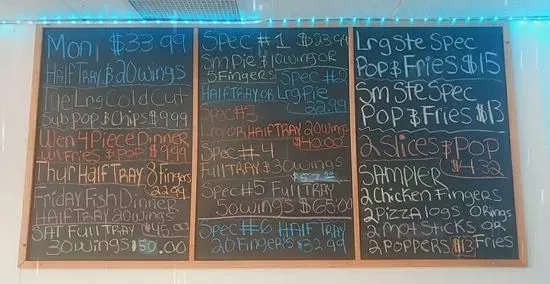 Mon, $33.99
HALF TRAY $ 20 wings
Tue Lng Cold Cut
Sub Pop $ Chips $9.99
Wen 4 Piece Dinner
w/ Fries Pop $ 9.99
Thur HALF TRAY 8 Fingers
22.99
Friday Fish Dinner
HALF TRAY 20 wings
$45.00
SAT Full TRAY
30 wings $50.00
Spec #1 $23.99
Sm Pie $ 10 wings or
5 Fingers
Spec #2
HALF TRAY or Lrg Pie
22.99
Spec #3
Lrg or HALF TRAY 20 wings
$40.00
Spec #4
Full TRAY $ 30 wings
$57.00
Spec #5 Full TRAY
50 wings $65.00
Spec #6 HALF TRAY
20 Fingers $32.99
Lrg Ste Spec
Pop $ Fries $15
Sm Ste Spec
Pop $ Fries $13
2 Slices $ Pop
$4.32
SAMPLER
2 Chicken Fingers
2 Pizza logs O Rings
2 mot Sticks or
Fries
2 Poppers $13